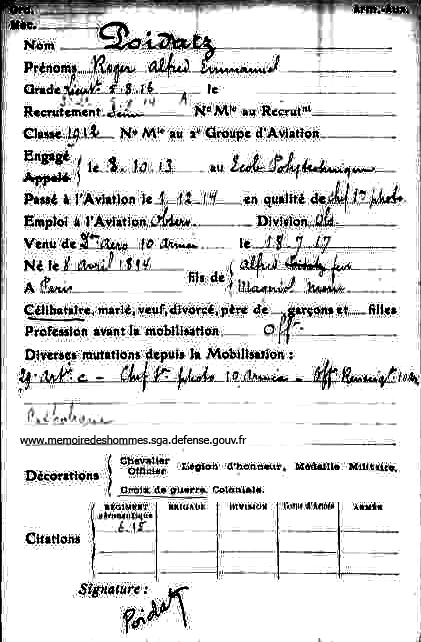 Ord.
Méc.
Arm.-Aux.
Nom Poidatz
Prénoms Roger Alfred Emmanuel
Grade lieut 5.8.16 le
Recrutement Seine Nº Mle au Recrutnt
Classe 1912 Nº Mle au 2e Groupe d'Aviation
Engagé
Appelé
le 8.10.13 au Ecole Polytechnique
Passé à l'Aviation le 1.12.14 en qualité de chef on photo
Emploi à l'Aviation Observ. Division Obs.
Venu de Aéro 10 Armée le 18.7.17
Né le 8 Avril 1894
A Paris
fils de
Alfred
Célibataire, marié, veuf, divorcé, père de garçons et filles
Profession avant la mobilisation Off.
Diverses mutations depuis la Mobilisation :
Chef photo 10 Armée - Off.
www.memoiredeshommes.sga.defense.gouv.fr
Décorations
Chevalier
Officier
Légion d'honneur, Médaille Militaire,
Croix de guerre, Coloniale.
Citations
RÉGIMENT BRIGADE DIVISION Corps d'Armée ARMÉE
aéronautique
6.15
Signature :
Poidatz